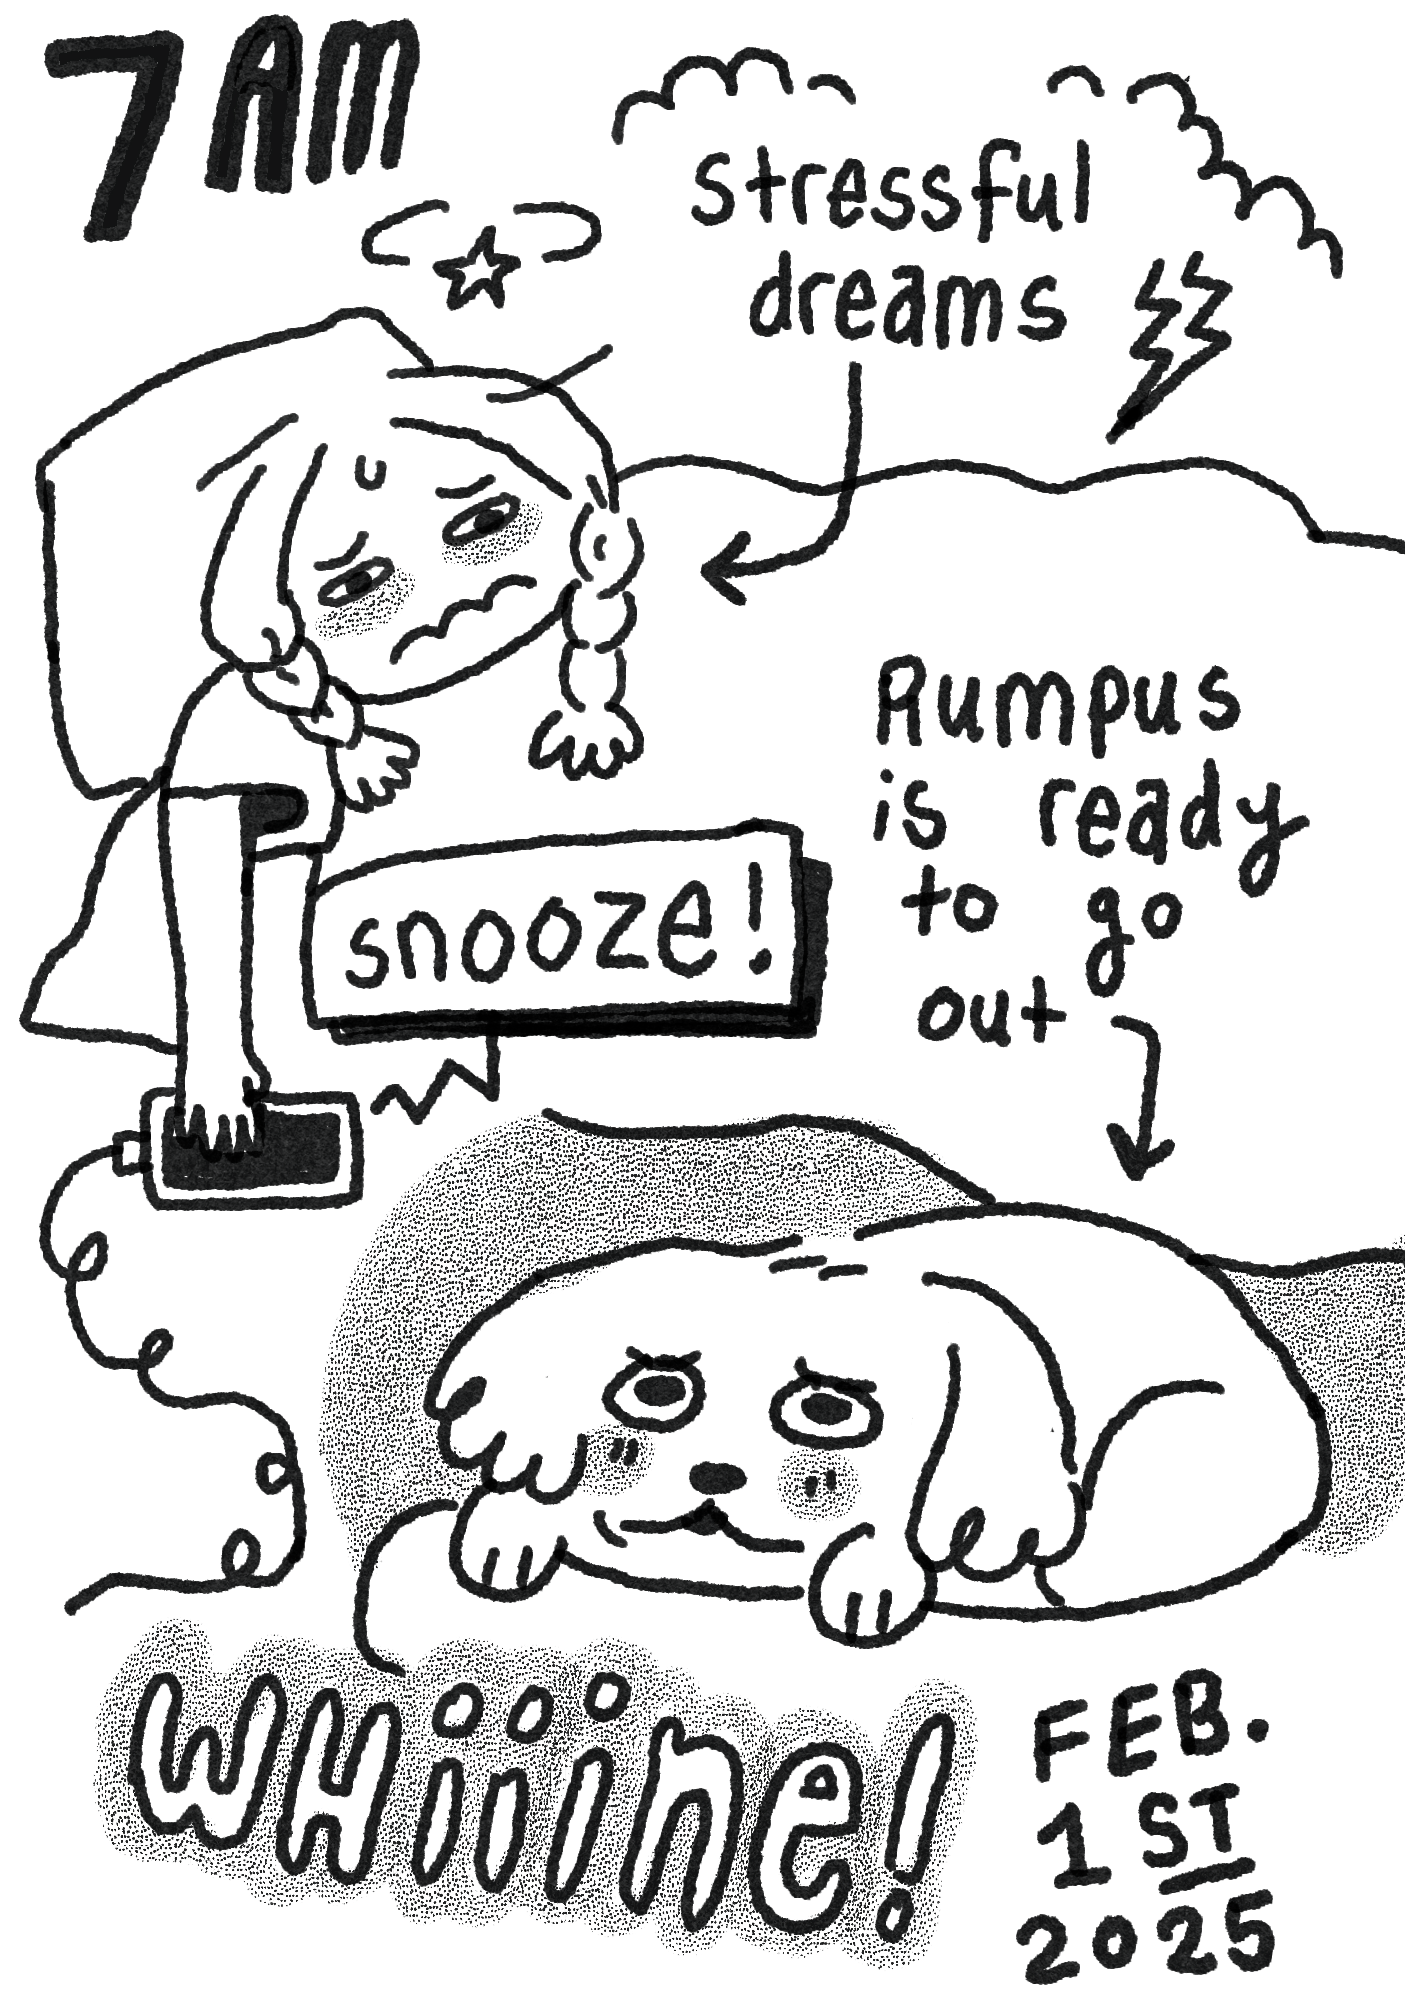 7 AM
stressful
dreams
Rumpus
is ready
to go
out
snooze!
WHiiine!
FEB.
1ST
2025